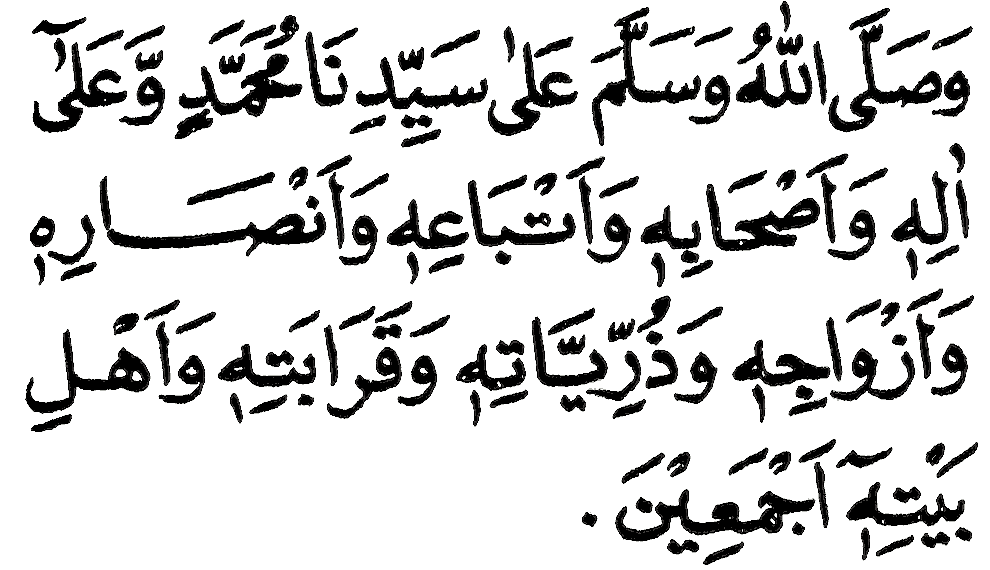 وَصَلَّى اللّٰهُ وَسَلَّمَ عَلٰى سَيِّدِنَا مُحَمَّدٍ وَّعَلٰٓى
اٰلِهٖ وَاَصْحَابِهٖ وَاَتْبَاعِهٖ وَاَنْصَـــارِهٖ
وَاَزْوَاجِهٖ وَذُرِّيَّاتِهٖ وَقَرَابَتِهٖ وَاَهْلِ
بَيْتِهٖٓ اَجْمَعِيْنَ .